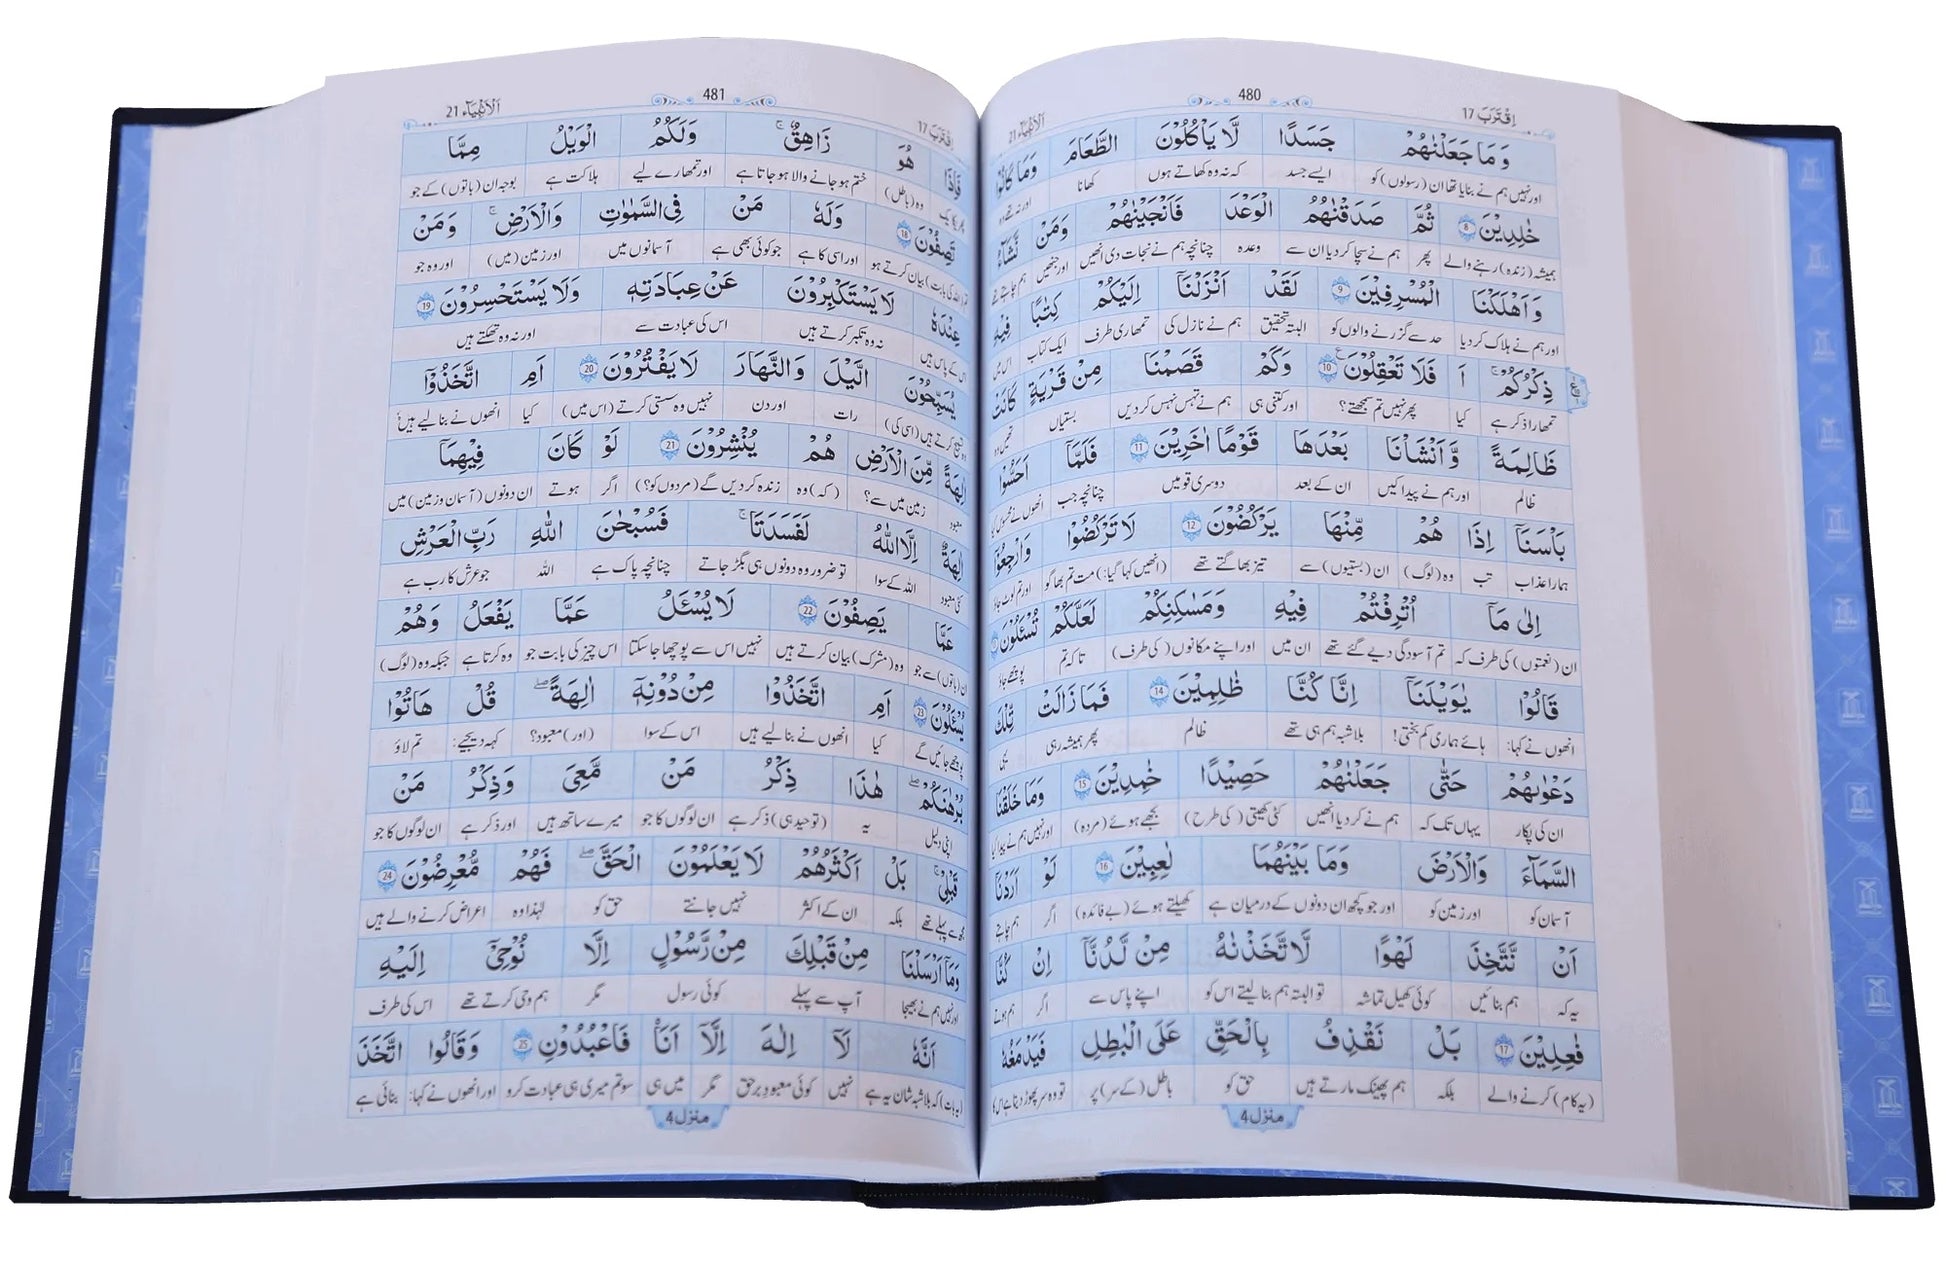 اِقْتَرَبَ 17
480
اَلْاَنْۢبِيَآء 21
وَمَا جَعَلْنٰهُمْ جَسَدًا لَّا يَاْكُلُوْنَ الطَّعَامَ وَمَا كَانُوْا
اور نہیں ہم نے بنایا تھا ان (رسولوں) کو ایسے جسد کہ نہ وہ کھاتے ہوں کھانا اور نہ تھے وہ
خٰلِدِيْنَ 8 ثُمَّ صَدَقْنٰهُمُ الْوَعْدَ فَاَنْجَيْنٰهُمْ وَمَنْ نَّشَآءُ
ہمیشہ (زندہ) رہنے والے پھر ہم نے سچا کر دیا ان سے وعدہ چنانچہ ہم نے نجات دی انھیں اور جنھیں ہم چاہتے تھے
وَاَهْلَكْنَا الْمُسْرِفِيْنَ 9 لَقَدْ اَنْزَلْنَآ اِلَيْكُمْ كِتٰبًا فِيْهِ
اور ہم نے ہلاک کر دیا حد سے گزرنے والوں کو البتہ تحقیق ہم نے نازل کی تمھاری طرف ایک کتاب اس میں
ذِكْرُكُمْ ۚ اَ فَلَا تَعْقِلُوْنَ 10 وَكَمْ قَصَمْنَا مِنْ قَرْيَةٍ كَانَتْ
تمھارا ذکر ہے کیا پھر نہیں تم سمجھتے؟ اور کتنی ہی ہم نے تہس نہس کر دیں بستیاں تھیں وہ
ظَالِمَةً وَّاَنْشَاْنَا بَعْدَهَا قَوْمًا اٰخَرِيْنَ 11 فَلَمَّآ اَحَسُّوْا
ظالم اور ہم نے پیدا کیں ان کے بعد دوسری قومیں چنانچہ جب انھوں نے محسوس کیا
بَاْسَنَآ اِذَا هُمْ مِّنْهَا يَرْكُضُوْنَ 12 لَا تَرْكُضُوْا وَارْجِعُوْٓا
ہمارا عذاب تب وہ (لوگ) ان (بستیوں) سے تیز بھاگتے تھے (انھیں کہا گیا:) مت تم بھاگو اور تم لوٹ جاؤ
اِلٰى مَآ اُتْرِفْتُمْ فِيْهِ وَمَسٰكِنِكُمْ لَعَلَّكُمْ تُسْـَٔلُوْنَ
ان (نعمتوں) کی طرف کہ تم آسودگی دیے گئے تھے ان میں اور اپنے مکانوں (کی طرف) تاکہ تم پوچھے جاؤ
قَالُوْا يٰوَيْلَنَآ اِنَّا كُنَّا ظٰلِمِيْنَ 14 فَمَا زَالَتْ تِّلْكَ
انھوں نے کہا: ہائے ہماری کم بختی! بلاشبہ ہم ہی تھے ظالم پھر ہمیشہ رہی یہی
دَعْوٰىهُمْ حَتّٰى جَعَلْنٰهُمْ حَصِيْدًا خٰمِدِيْنَ 15 وَمَا خَلَقْنَا
ان کی پکار یہاں تک کہ ہم نے کر دیا انھیں کٹی کھیتی (کی طرح) بجھے ہوئے (مردہ) اور نہیں ہم نے پیدا کیا
السَّمَآءَ وَالْاَرْضَ وَمَا بَيْنَهُمَا لٰعِبِيْنَ 16 لَوْ اَرَدْنَآ
آسمان کو اور زمین کو اور جو کچھ ان دونوں کے درمیان ہے کھیلتے ہوئے (بے فائدہ) اگر ہم چاہتے
اَنْ نَّتَّخِذَ لَهْوًا لَّاتَّخَذْنٰهُ مِنْ لَّدُنَّآ اِنْ كُنَّا
یہ کہ ہم بنائیں کوئی کھیل تماشہ تو البتہ ہم بنا لیتے اس کو اپنے پاس سے اگر ہم ہوتے
فٰعِلِيْنَ 17 بَلْ نَقْذِفُ بِالْحَقِّ عَلَى الْبَاطِلِ فَيَدْمَغُهٗ
(یہ کام) کرنے والے بلکہ ہم پھینک مارتے ہیں حق کو باطل (کے سر) پر تو وہ سر پھوڑ دیتا ہے اس کا
منزل 4
اِقْتَرَبَ 17
481
اَلْاَنْۢبِيَآء 21
فَاِذَا هُوَ زَاهِقٌ ۚ وَلَكُمُ الْوَيْلُ مِمَّا
پھر یکایک وہ (باطل) ختم ہو جانے والا ہو جاتا ہے اور تمھارے لیے ہلاکت ہے بوجہ ان (باتوں) کے جو
تَصِفُوْنَ 18 وَلَهٗ مَنْ فِى السَّمٰوٰتِ وَالْاَرْضِ ۚ وَمَنْ
تم (اللہ کی بابت) بیان کرتے ہو اور اسی کا ہے جو کوئی بھی ہے آسمانوں میں اور زمین (میں) اور وہ جو
عِنْدَهٗ لَا يَسْتَكْبِرُوْنَ عَنْ عِبَادَتِهٖ وَلَا يَسْتَحْسِرُوْنَ 19
اس کے پاس ہیں نہ وہ تکبر کرتے ہیں اس کی عبادت سے اور نہ وہ تھکتے ہیں
يُسَبِّحُوْنَ الَّيْلَ وَالنَّهَارَ لَا يَفْتُرُوْنَ 20 اَمِ اتَّخَذُوْٓا
وہ تسبیح کرتے ہیں (اسی کی) رات اور دن نہیں وہ سستی کرتے (اس میں) کیا انھوں نے بنا لیے ہیں
اٰلِهَةً مِّنَ الْاَرْضِ هُمْ يُنْشِرُوْنَ 21 لَوْ كَانَ فِيْهِمَآ
معبود زمین میں سے؟ (کہ) وہ زندہ کر دیں گے (مردوں کو؟) اگر ہوتے ان دونوں (آسمان و زمین) میں
اٰلِهَةٌ اِلَّا اللّٰهُ لَفَسَدَتَا ۚ فَسُبْحٰنَ اللّٰهِ رَبِّ الْعَرْشِ
کئی معبود اللہ کے سوا تو ضرور وہ دونوں ہی بگڑ جاتے چنانچہ پاک ہے اللہ جو عرش کا رب ہے
عَمَّا يَصِفُوْنَ 22 لَا يُسْـَٔلُ عَمَّا يَفْعَلُ وَهُمْ
ان (باتوں) سے جو وہ (مشرک) بیان کرتے ہیں نہیں اس سے پوچھا جا سکتا اس چیز کی بابت جو وہ کرتا ہے جبکہ وہ (لوگ)
يُسْـَٔلُوْنَ 23 اَمِ اتَّخَذُوْا مِنْ دُوْنِهٖٓ اٰلِهَةً ۖ قُلْ هَاتُوْا
پوچھے جائیں گے کیا انھوں نے بنا لیے ہیں اس کے سوا (اور) معبود؟ کہہ دیجیے: تم لاؤ
بُرْهَانَكُمْ ۖ هٰذَا ذِكْرُ مَنْ مَّعِىَ وَذِكْرُ مَنْ
اپنی دلیل یہ (توحید ہی) ذکر ہے ان لوگوں کا جو میرے ساتھ ہیں اور ذکر ہے ان لوگوں کا جو
قَبْلِىْ ۚ بَلْ اَكْثَرُهُمْ لَا يَعْلَمُوْنَ الْحَقَّ ۖ فَهُمْ مُّعْرِضُوْنَ 24
مجھ سے پہلے تھے بلکہ ان کے اکثر نہیں جانتے حق کو لہٰذا وہ اعراض کرنے والے ہیں
وَمَآ اَرْسَلْنَا مِنْ قَبْلِكَ مِنْ رَّسُوْلٍ اِلَّا نُوْحِىْٓ اِلَيْهِ
اور نہیں ہم نے بھیجا آپ سے پہلے کوئی رسول مگر ہم وحی کرتے تھے اس کی طرف
اَنَّهٗ لَآ اِلٰهَ اِلَّآ اَنَا فَاعْبُدُوْنِ 25 وَقَالُوا اتَّخَذَ
(یہ بات) کہ بلاشبہ شان یہ ہے نہیں کوئی معبود برحق مگر میں ہی سو تم میری ہی عبادت کرو اور انھوں نے کہا: بنائی ہے
منزل 4